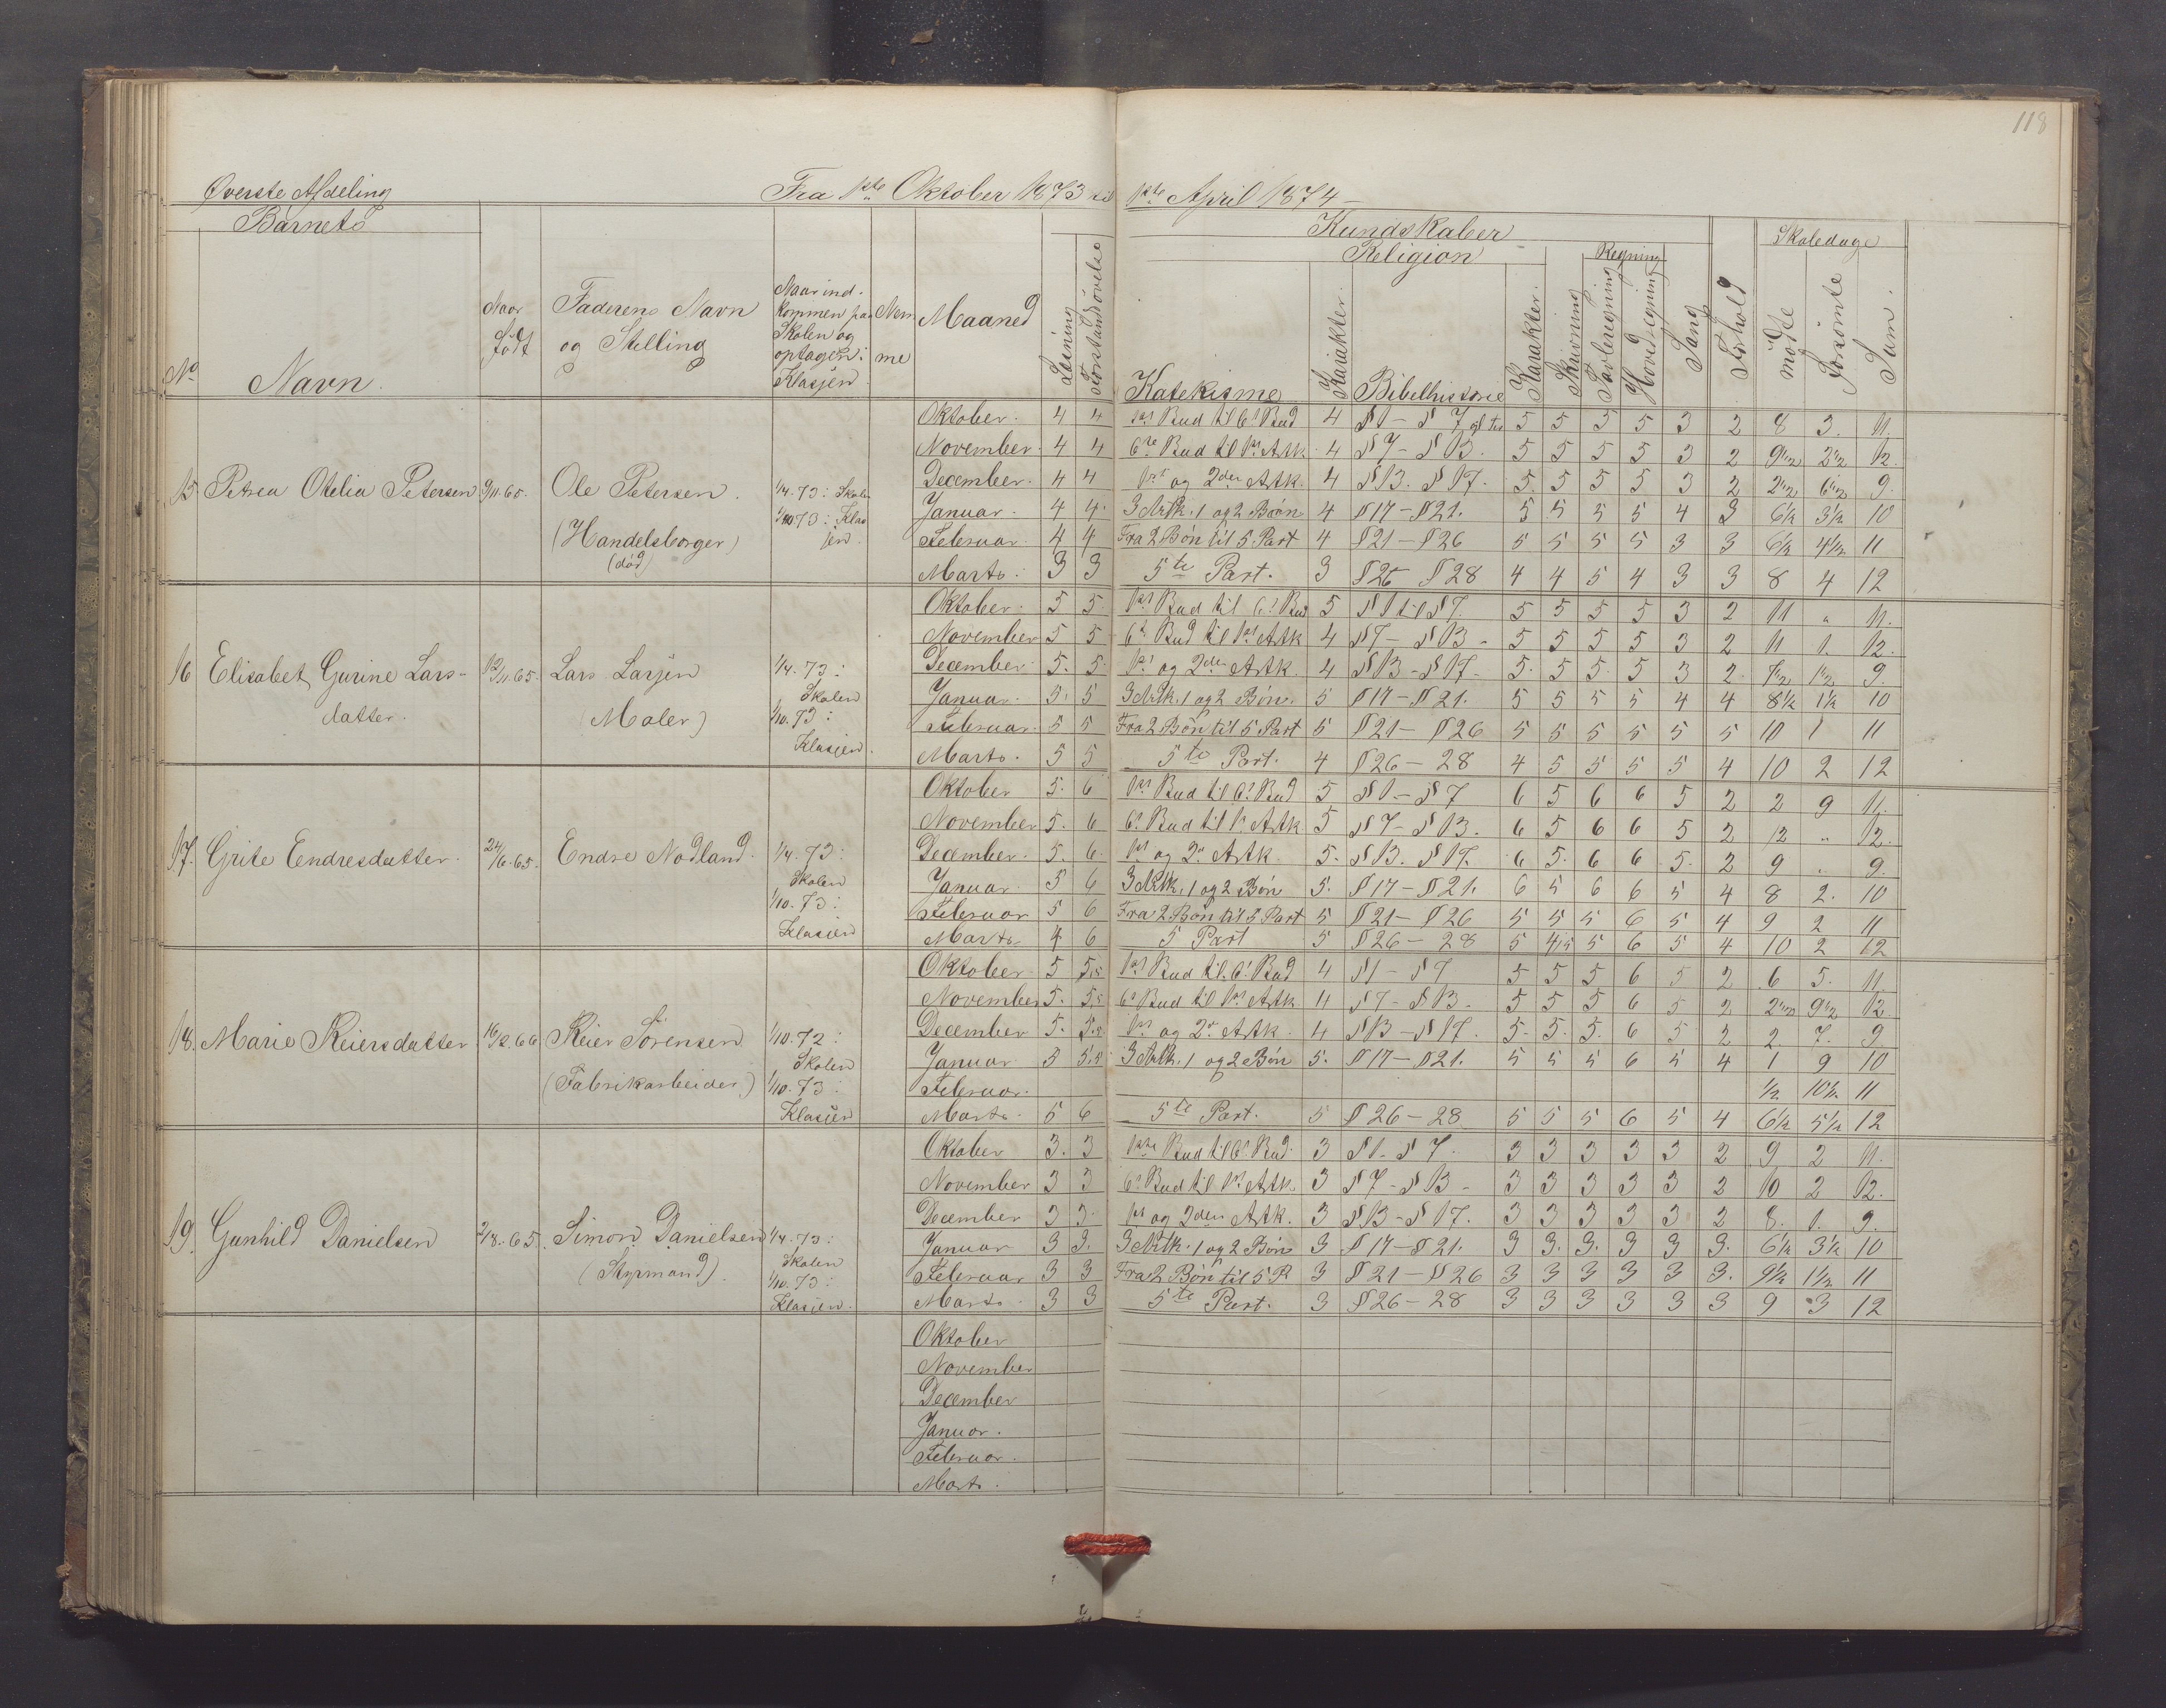 118
Øverste Afdeling Fra 1ste Oktober 1873 til 1ste April 1874 –
Barnets Kundskaber Skoledage
Religion Regning
No Navn. Naar født Faderens Navn og Stilling Naar ind-kommen paa Skolen og optagen i Klassen. Maaned Læsning Forstandsøvelse Katekisme Karakter. Bibelhistorie Karakter. Skrivning Tavleregning Hovedregning Sang Forhold mødte forsømte Sum.
Oktober. 4 4 1st Bud til 6t Bud 4 § 1 – § 7 5 5 5 5 3 2 8 3. 11.
November. 4 4 6te Bud til 1st Artk 4 § 7 – § 13. 5 5 5 5 3 2 9 1/2 2 1/2 12.
15 Petrea Otelia Petersen 9/11.65. Ole Petersen. 1/4.73: Skolen December. 4 4 1st og 2den Artk. 4 § 13. § 17. 5 5 5 5 3 2 2 1/2 6 1/2 9.
1/10 73: Klassen. Januar. 4 4. 3 Artk. 1 og 2 Bøn 4 § 17 – § 21. 5 5 5 5 4 3 6 1/2 3 1/2 10
(Handelsborger) Februar. 4 4 Fra 2 Bøn til 5 Part 4 § 21 – § 26 5 5 5 5 3 3 6 1/2 4 1/2 11
(død) Marts. 3 3 5te Part. 3 § 26 § 28 4 4 5 4 3 3 8 4 12
Oktober. 5 5 1st Bud til 6t Bud 5 § 1 til § 7. 5 5 5 5 3 2 11 „ 11.
November 5 5 6t Bud til 1st Artk 4 § 7 – § 13 – 5 5 5 5 3 2 11 1. 12.
16 Elisabet Gurine Lars- 12/11.65. Lars Larsen 1/4.73: December 5. 5. 1st og 2den Artk. 4 § 13 – § 17. 5. 5 5 5 3 2. 7 1/2 1 1/2 9.
datter. (Maler) Skolen Januar. 5. 5 3 Artk. 1 og 2 Bøn. 5 § 17 – § 21. 5 5 5 5 4 4 8 1/2 1 1/2 10
1/10.73: Februar. 5 5 Fra 2 Bøn til 5 Part 5 § 21 – § 26 5 5 5 5 5 5 10 1 11
Klassen. Marts. 5 5 5te Part. 4 § 26 – 28 4 5 5 5 5 4 10 2 12
Oktober 5. 6 1st Bud til 6t Bud 5 § 1 – § 7 6 5 6 6 5 2 2 9 11.
November 5. 6 6t Bud til 1st Artk 5 § 7 – § 13. 6 5 6 6 5 2 12 „ 12.
17. Grite Endresdatter. 24/6.65. Endre Nodland. 1/4.73: December. 5. 6. 1st og 2n Artk. 5. § 13. § 17. 6 5. 6 6 5. 2 9 „ 9.
Skolen Januar 5 6 3 Artk. 1 og 2 Bøn 5. § 17 – § 21. 6 5 6 6 5 4 8 2. 10
1/10.73: Februar 5 6 Fra 2 Bøn til 5 Part 5 § 21 – § 26 5 5 5 6 5 4 9 2 11
Klassen Marts 4 6 5 Part 5 § 26 – 28 5 4,5 5 6 5 4 10 2 12
Oktober. 5 5,5 1st Bud til 6t Bud 4 § 1 – § 7 5 5 5 6 5 2 6 5. 11.
November 5. 5,5 6t Bud til 1st Artk 4 § 7 – § 13 – 5 5 5 6 5 2 2 1/2 9 1/2 12.
18. Marie Reiersdatter 16/2.66 Reier Sørensen 1/10.72: December 5. 5.5 1st og 2n Artk. 4 § 13 – § 17. 5. 5. 5. 6 5 2 2. 7. 9.
Skolen Januar 5 5.5 3 Artk. 1 og 2 Bøn 5. § 17 – § 21. 5 5 5 6 5 4 1 9 10
(Fabrikarbeider) 1/10.73: Februar. 1/2 10 1/2 11
Klassen Marts. 5 6 5te Part. 5 § 26 – 28 5 5 5 6 5 4 6 1/2 5 1/2 12
Oktober 3. 3 1ste Bud til 6t Bud. 3 § 1. § 7. 3 3 3 3 3 2 9 2 11.
November 3 3 6t Bud til 1st Artk. 3 § 7 – § 13 – 3 3 3 3 3 2 10 2 12.
19. Gunhild Danielsen 2/8.65. Simon Danielsen 1/4.73: December 3 3. 1st og 2den Artk. 3 § 13 – § 17. 3 3 3 3 3 2 8. 1. 9.
Skolen Januar 3 3. 3 Artk. 1 og 2 Bøn 3 § 17 – § 21. 3 3. 3. 3 3 3. 6 1/2 3 1/2 10
(Styrmand). 1/10.73: Februar 3 3 Fra 2 Bøn til 5 P 3 § 21 – § 26 3 3 3 3 3 3. 9 1/2 1 1/2 11
Klassen. Marts. 3 3 5te Part. 3 § 26 – 28 3 3 3 3 3 3 9 3 12
Oktober
November
December
Januar.
Februar.
Marts.